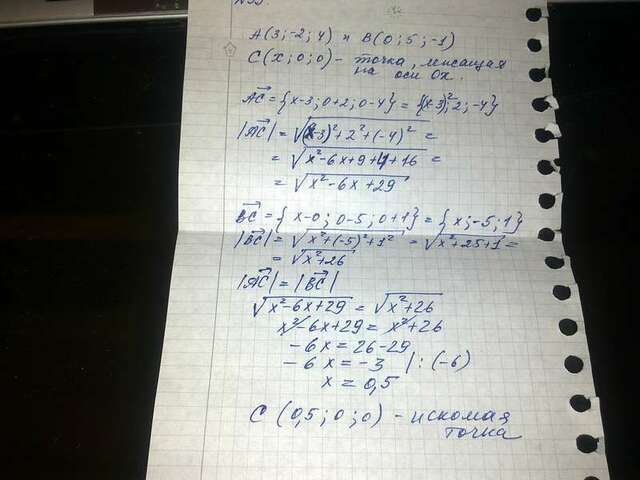 A(3;-2;4) и B(0;5;-1)
C(x;0;0) - точка, лежащая
на оси Ox.
AC = {x-3; 0+2; 0-4} = {(x-3)²; 2; -4}
|AC| = √((x-3)²+2²+(-4)²) =
= √(x²-6x+9+4+16) =
= √(x²-6x+29)
BC = {x-0; 0-5; 0+1} = {x; -5; 1}
|BC| = √(x²+(-5)²+1²) = √(x²+25+1) =
= √(x²+26)
|AC| = |BC|
√(x²-6x+29) = √(x²+26)
x²-6x+29 = x²+26
-6x = 26-29
-6x = -3 | : (-6)
x = 0,5
C (0,5; 0; 0) - искомая
точка